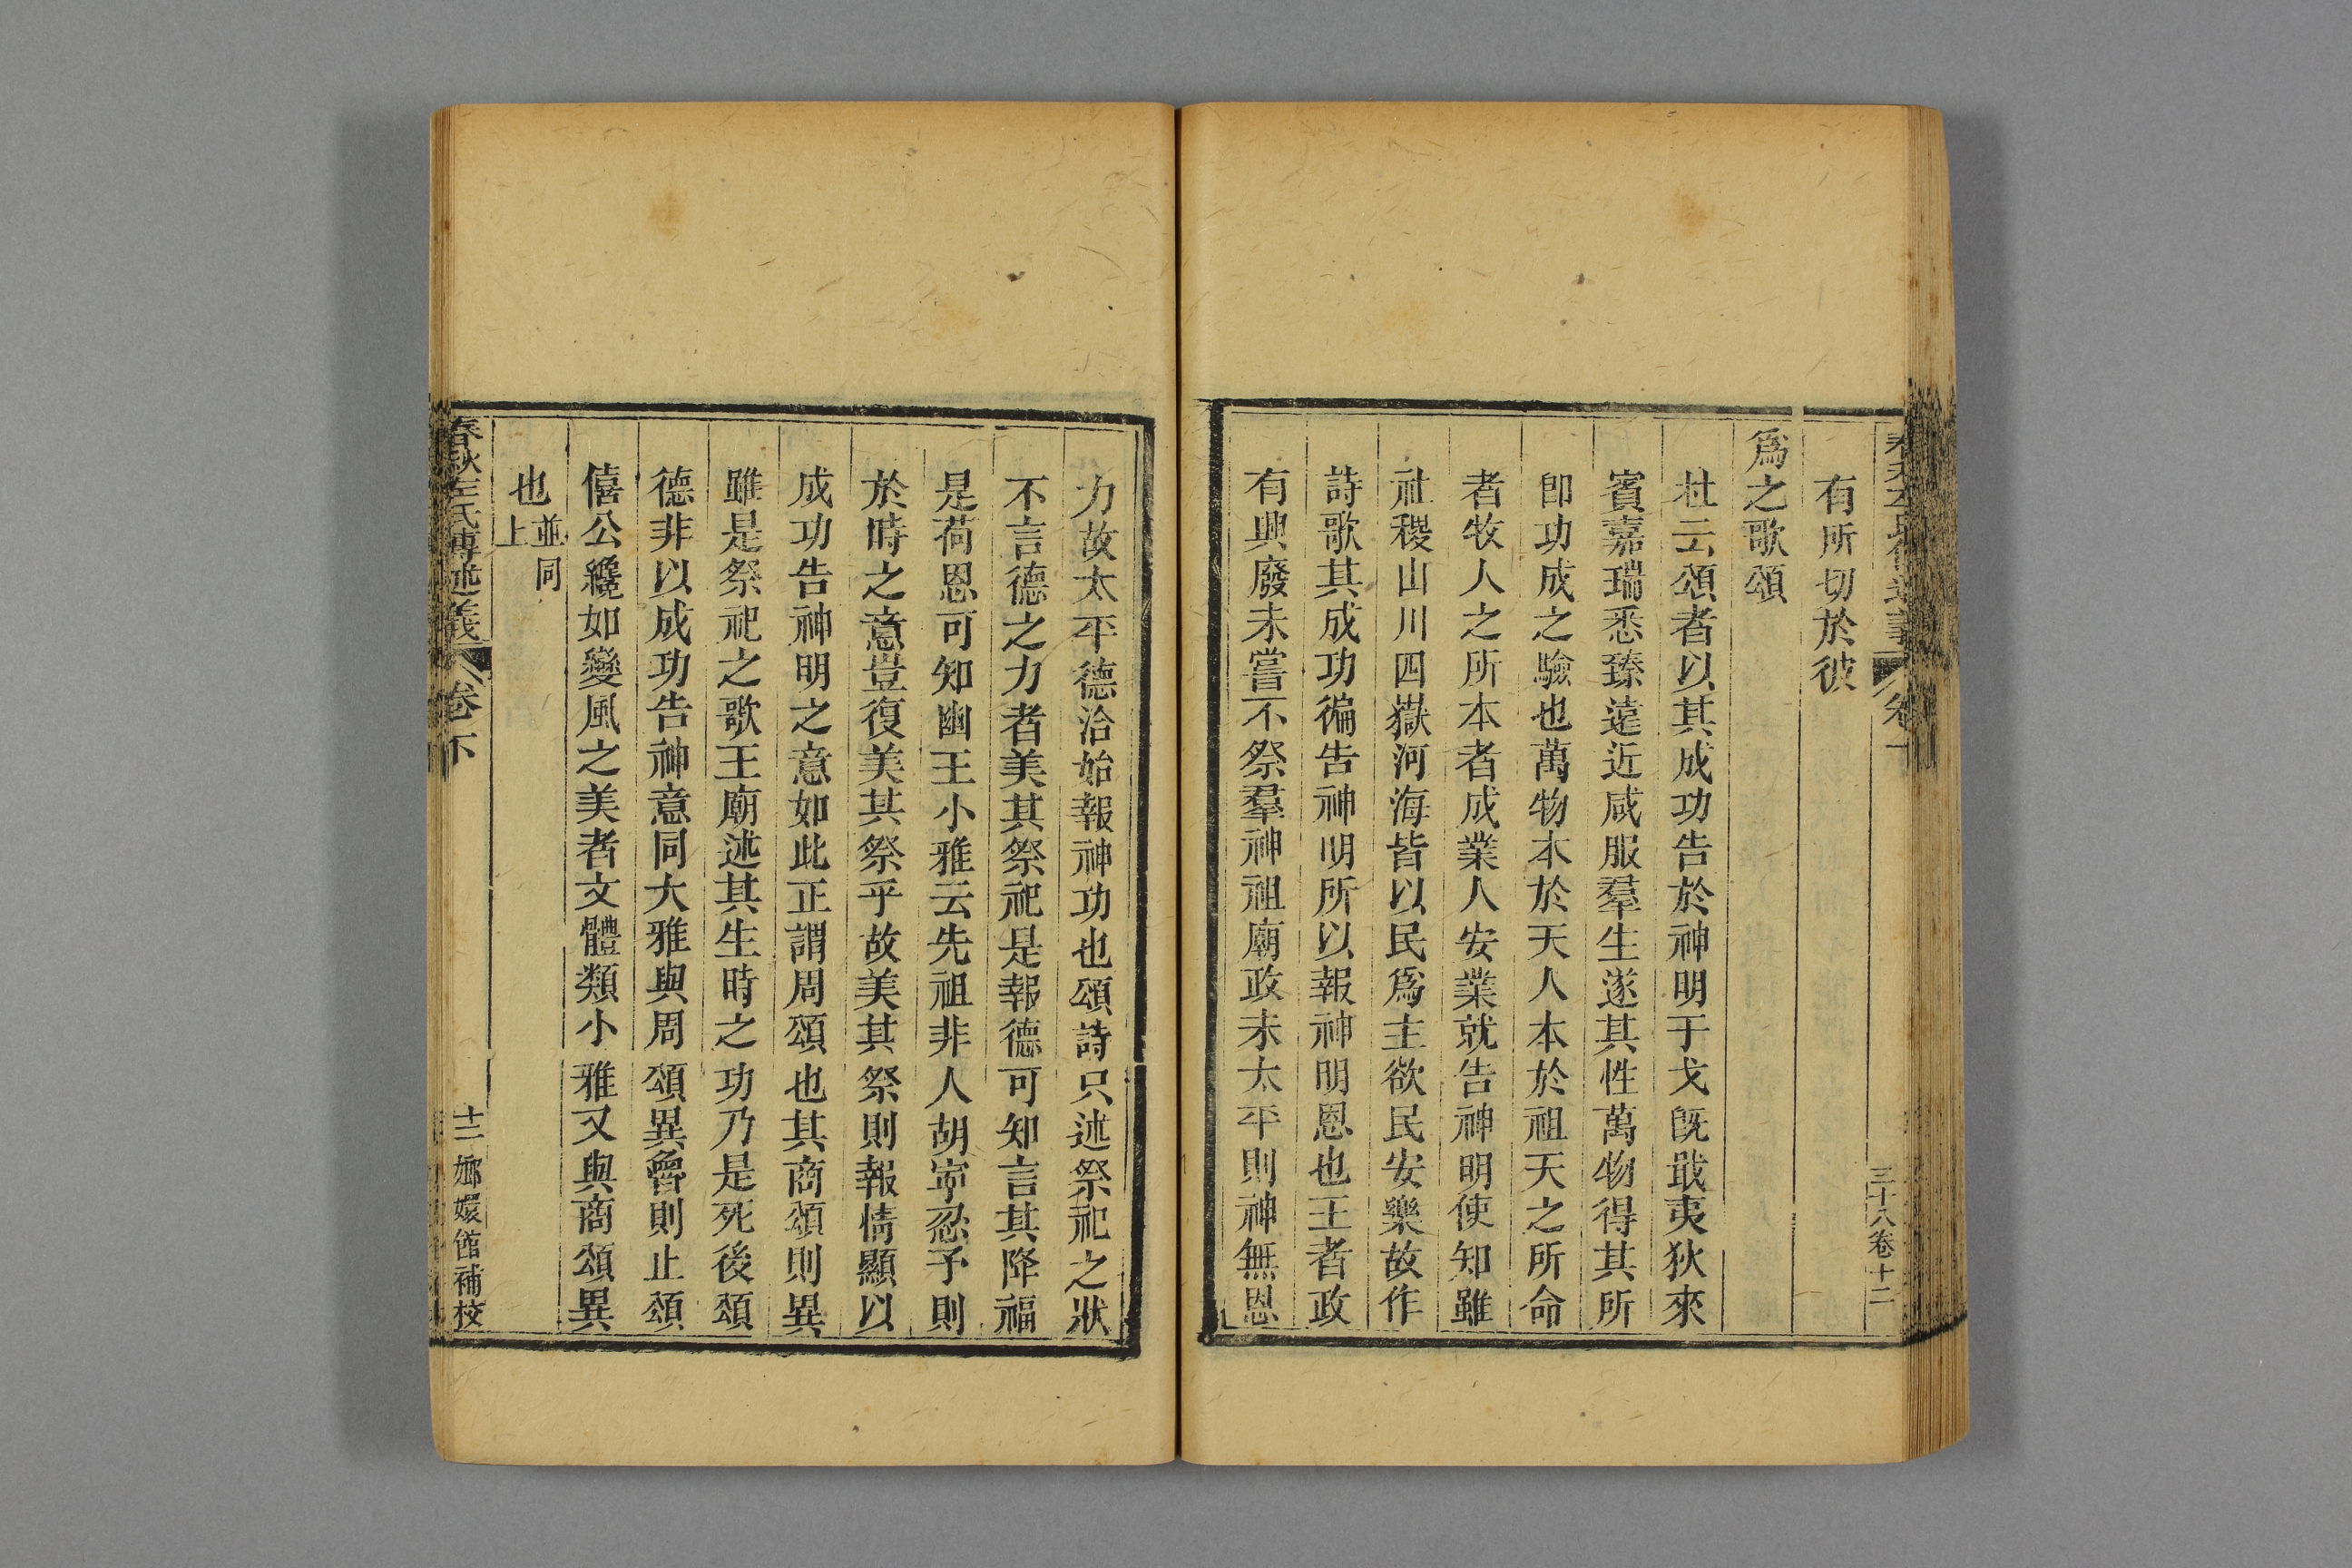 三十八卷十二
有所切於彼
爲之歌頌
杜云頌者以其成功告於神明干戈旣戢夷狄來
賓嘉瑞悉臻遠近咸服羣生遂其性萬物得其所
卽功成之驗也萬物本於天人本於祖天之所命
者牧人之所本者成業人安業就告神明使知雖
社稷山川四嶽河海皆以民爲主欲民安樂故作
詩歌其成功徧告神明所以報神明恩也王者政
有興廢未嘗不祭羣神祖廟政未太平則神無恩
力故太平德洽始報神功也頌詩只述祭祀之狀
不言德之力者美其祭祀是報德可知言其降福
是荷恩可知幽王小雅云先祖非人胡寧忍予則
於時之意豈復美其祭乎故美其祭則報情顯以
成功告神明之意如此正謂周頌也其商頌則異
雖是祭祀之歌王廟述其生時之功乃是死後頌
德非以成功告神意同大雅與周頌異魯則止頌
僖公纔如變風之美者文體類小雅又與商頌異
也並同上
春秋左氏傳述義 卷下 十二 嫏嬛館補校